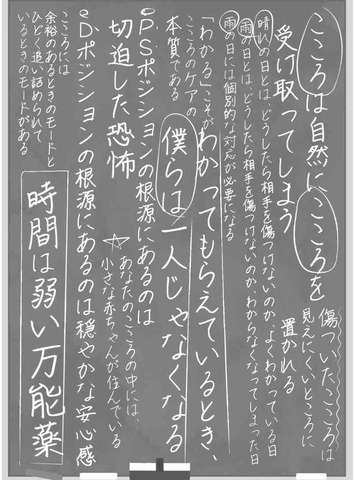 こころは自然にこころを
受け取ってしまう
傷ついたこころは
見えにくいところに
置かれる
晴れの日とは、どうしたら相手を傷つけないのか、よくわかっている日
雨の日とは、どうしたら相手を傷つけないのか、わからなくなってしまった日
雨の日には個別的な対応が必要になる
「わかる」こそが
こころのケアの
本質である
わかってもらえているとき、
僕らは一人じゃなくなる
●PSポジションの根源にあるのは
切迫した恐怖
☆あなたのこころの中には、
小さな赤ちゃんが住んでいる
●Dポジションの根源にあるのは穏やかな安心感
こころには
余裕のあるときのモードと
ひどく追い詰められて
いるときのモードがある
時間は弱い万能薬